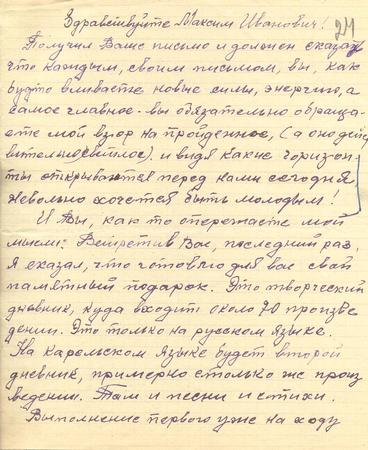 Здравствуйте Максим Иванович! 24
Получил Ваше письмо и должен сказать
что каждым, своим письмом, вы, как
будто вливаете новые силы, энергию, а
самое главное - вы обязательно обраща-
ете мой взор на пройденное, (а оно дейс
вительно светлое) и видя какие горизон
ты открываются перед нами сегодня,
невольно хочется быть молодым!
И Вы, как то опережаете мой
мысли: Встретив Вас, последний раз,
Я сказал, что готовлю для вас свой
памятный подарок. Это творческий
дневник, куда входит около 70 произве
дении. Это только на русском языке.
На карельском языке будет второй
дневник, примерно столько же произ
ведении. Там и песни и стихи.
Выполнение первого уже на ходу